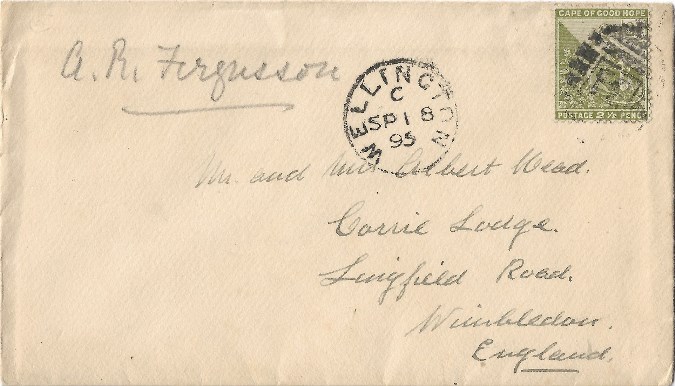 CAPE OF GOOD HOPE
POSTAGE 2½ PENCE
A. R. Fergusson
WELLINGTON
C
SP 18
95
Mr. and Mrs Albert Mead.
Corrie Lodge.
Lingfield Road.
Wimbledon.
England.